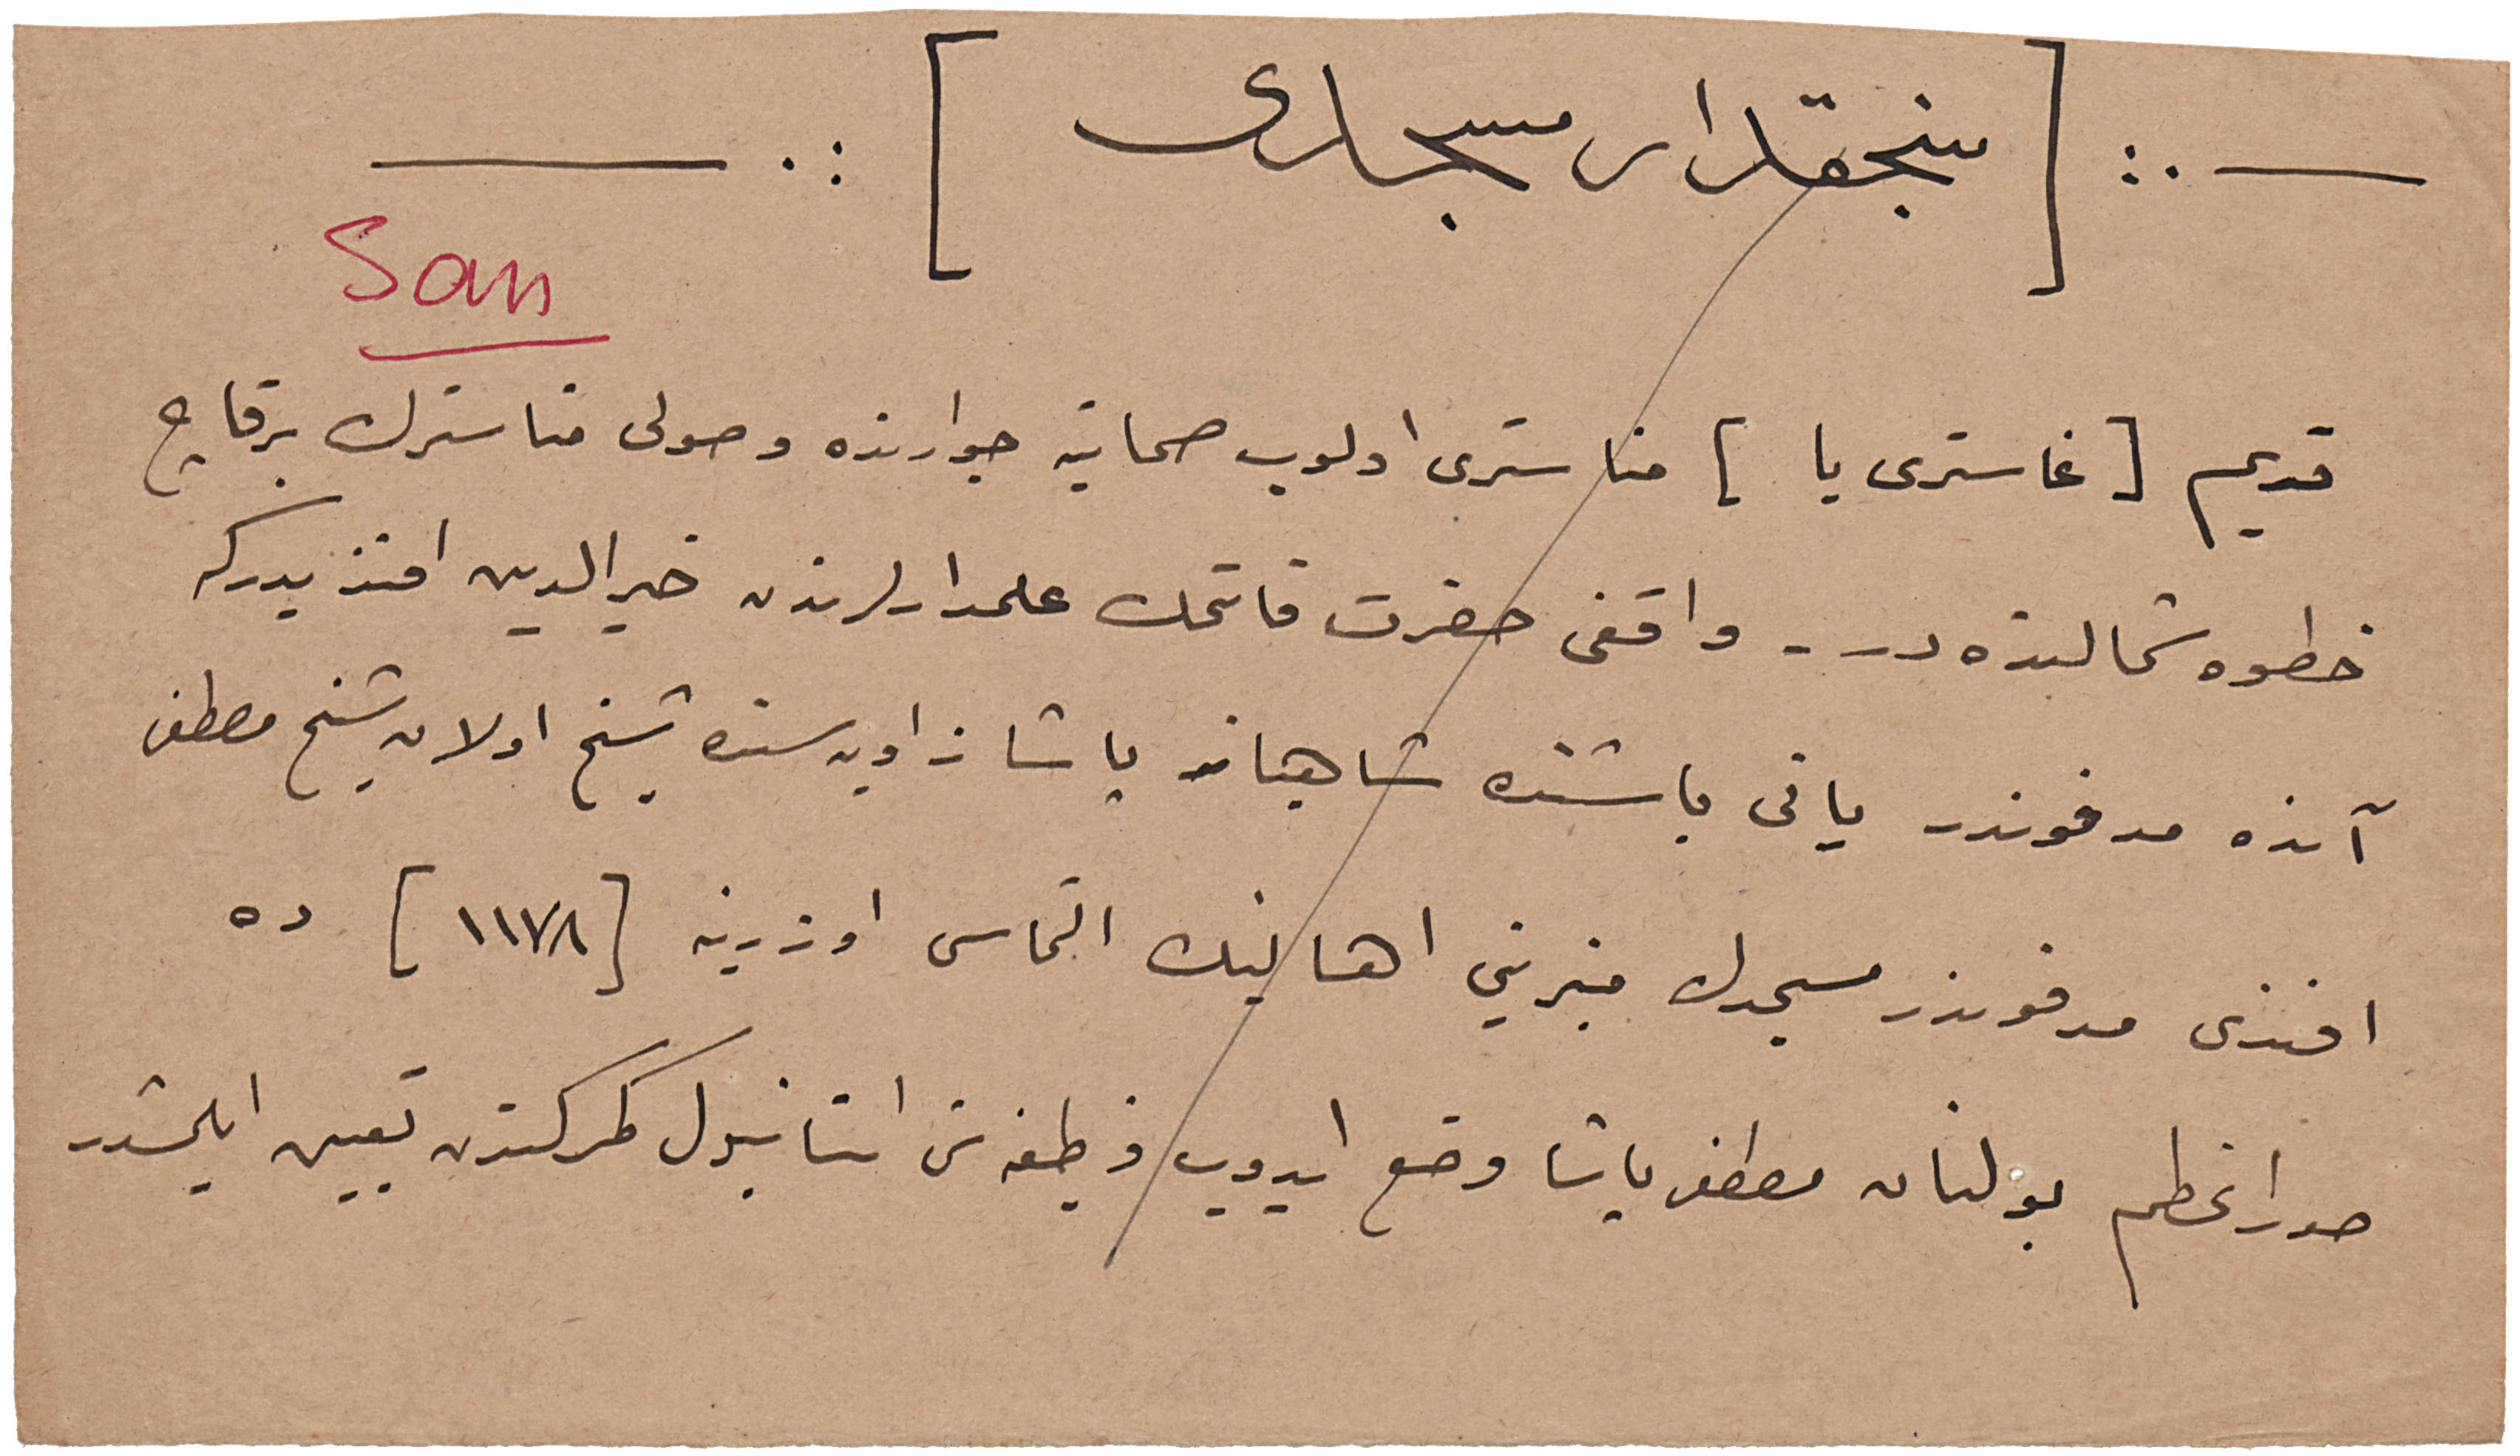 [ سنجقدار مسجدی ]
Sam
قدیم [ غاستری یا ] مناستری اولوب صماتیه جوارنده و صولی مناسترك برقاچ
خطوه شمالنده در - واقفی حضرت فاتحك علمدارلرندن خیرالدین افندیدركه
آنده مدفوندر یانی باشنده شاهیان پاشا زاویه سنده شیخ اولان شیخ مصطفی
افندی مدفوندر مسجدك منبرینی اهالینك التماسی اوزرینه [ ١١٧٨ ] ده
صدراعظم بولنان مصطفی پاشا وضع ایدوب وظیفه سنی استانبول كمركندن تعیین ایلمشدر